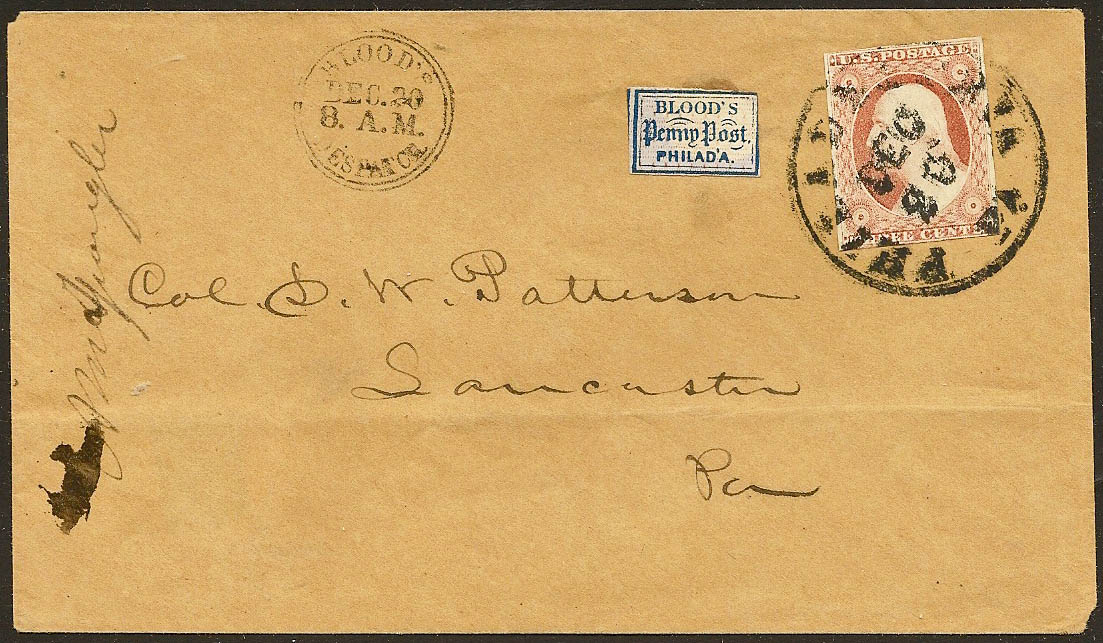 BLOOD'S
DEC. 20
8. A.M.
DESPATCH
BLOOD'S
Penny Post.
PHILAD'A.
U.S. POSTAGE
THREE CENTS
DEC
20
Col. S. W. Patterson
Lancaster
Pa